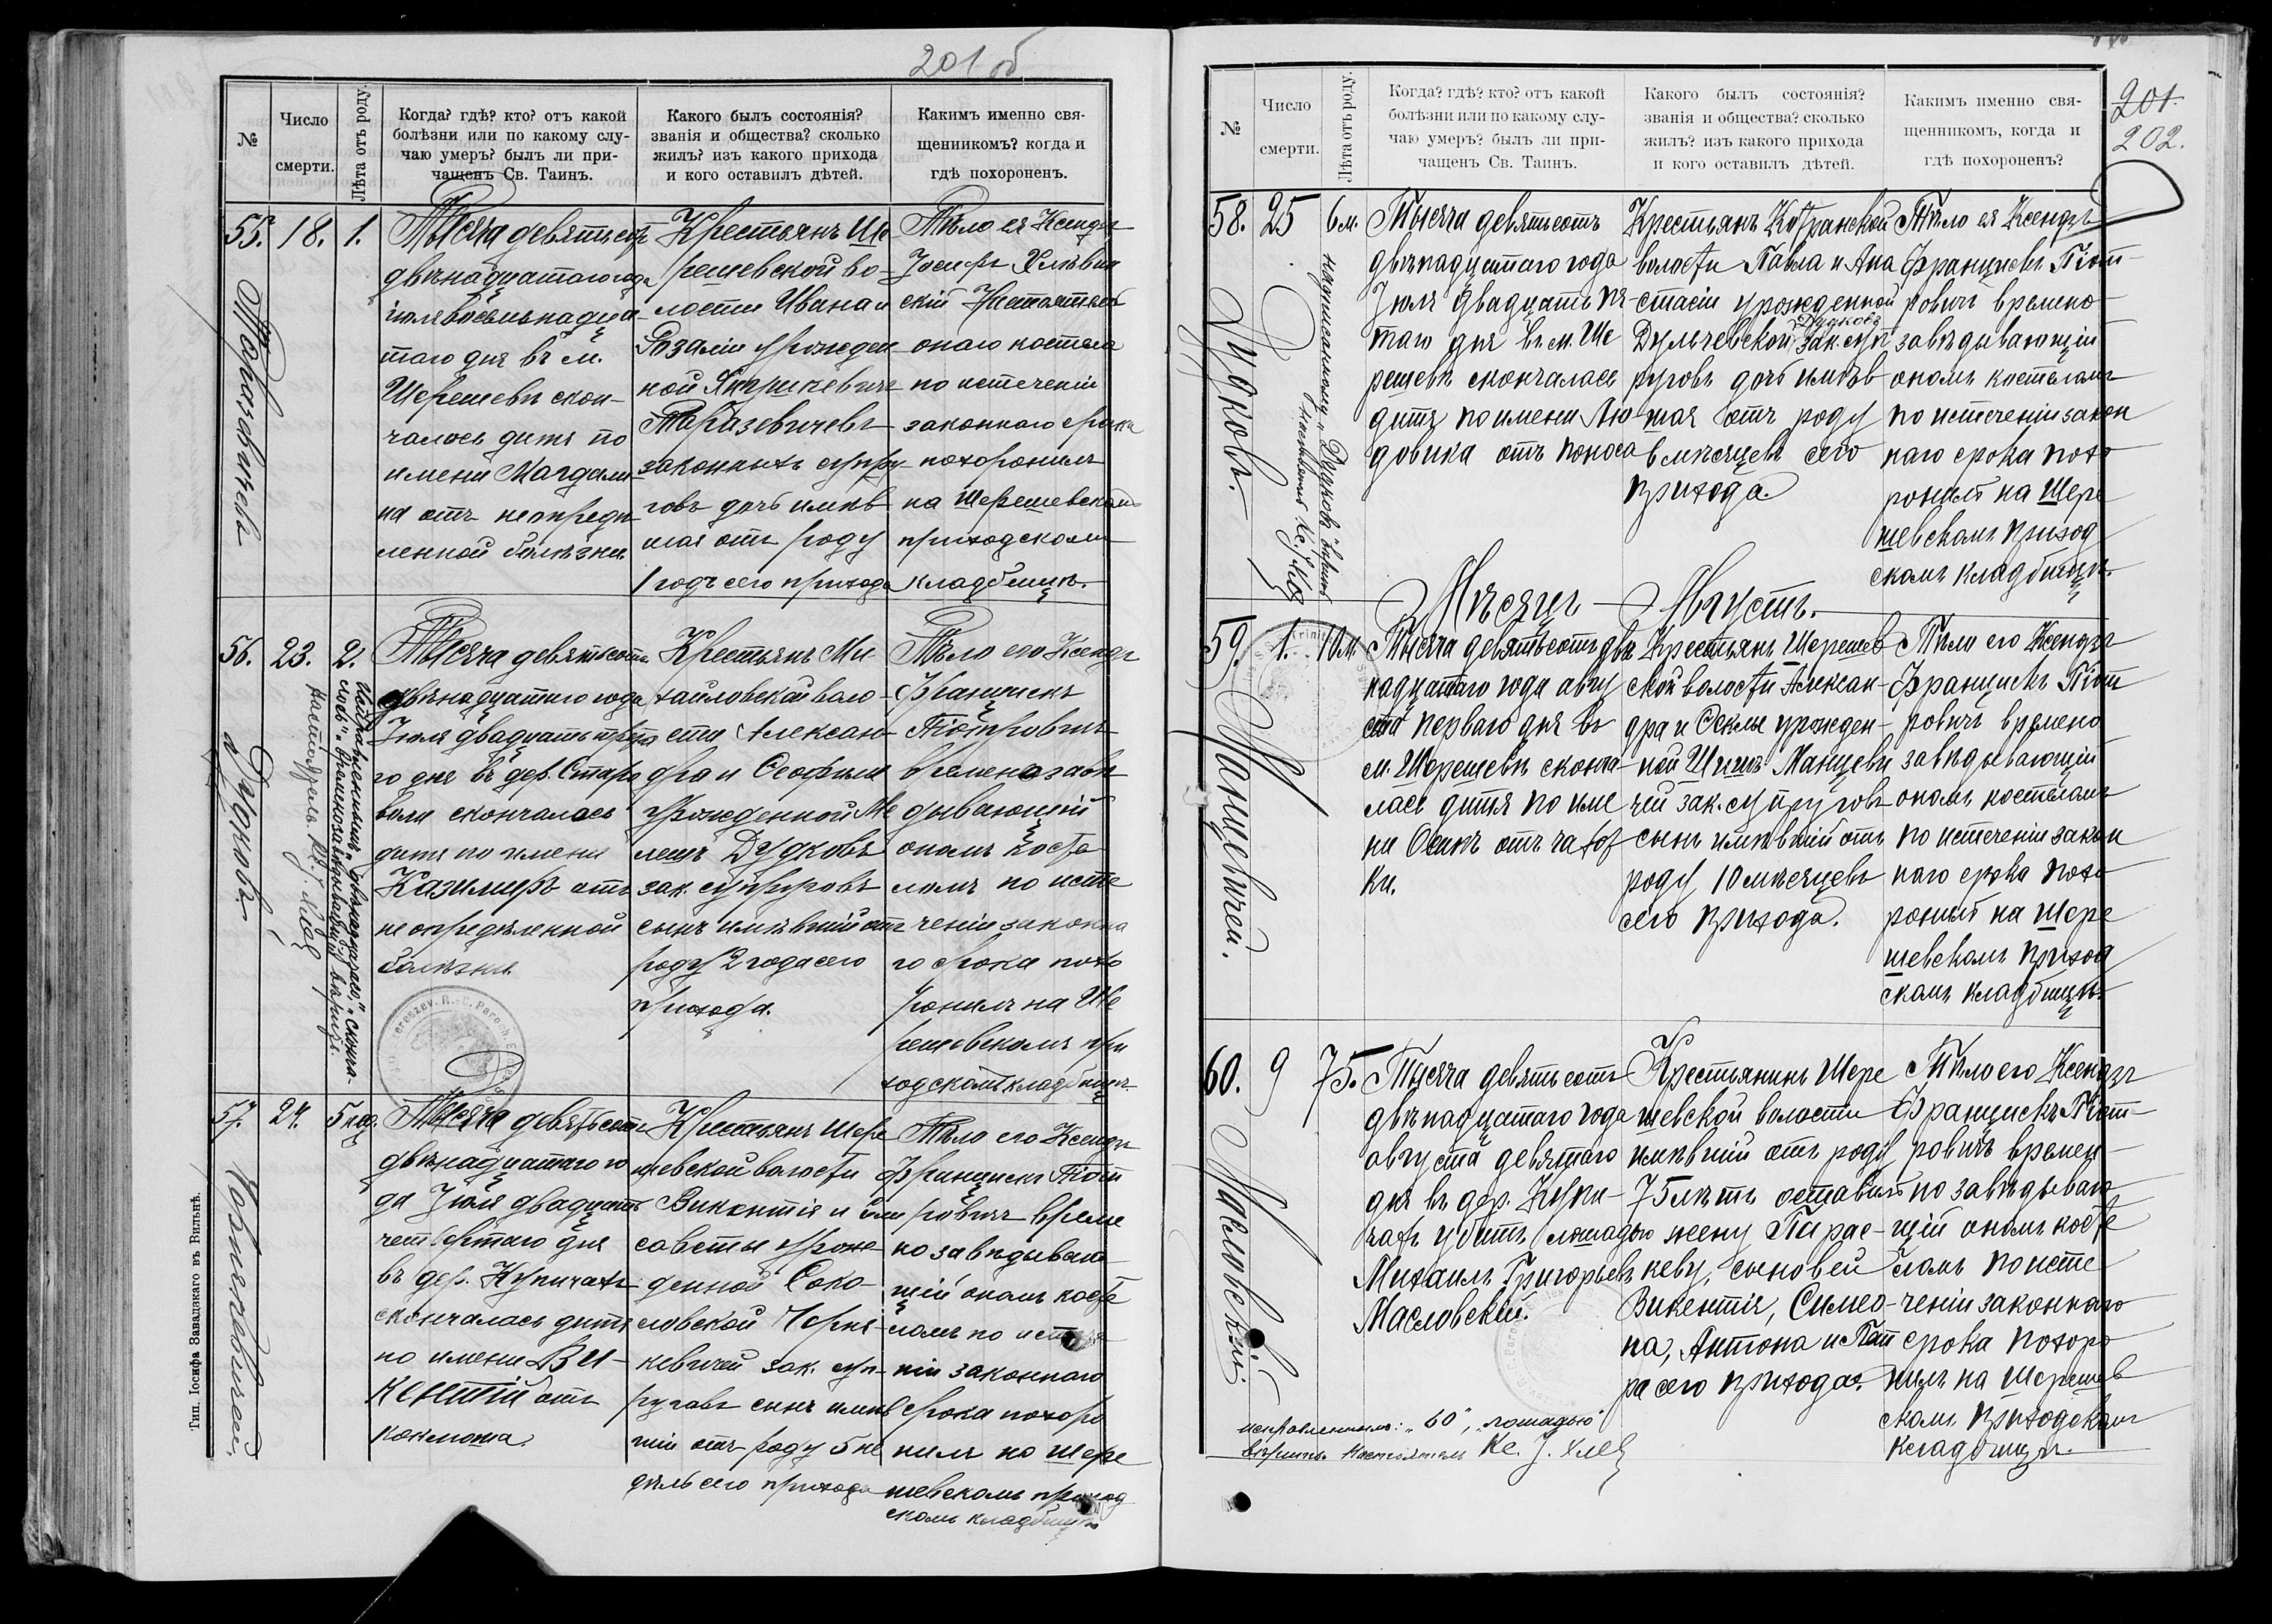 201 об
№
Число
смерти.
Лѣта отъ роду.
Когда? гдѣ? кто? отъ какой
болѣзни или по какому слу-
чаю умеръ? былъ ли при-
чащенъ Св. Таинъ.
Какого былъ состоянія?
званія и общества? сколько
жилъ? изъ какого прихода
и кого оставилъ дѣтей.
Какимъ именно свя-
щенникомъ? когда и
гдѣ похороненъ.
55. 18. 1.
Тысяча девятьсотъ
двѣнадцатаго года
іюля восьмнадца-
таго дня въ м.
Шерешевѣ скон-
чалось дитя по
имени Магдали-
на отъ неопредѣ
ленной болѣзни.
Крестьянъ Ше-
решевской во-
лости Ивана и
Розаліи урожден
ной
Таразевичевъ
законныхъ супру-
говъ дочь имѣв
шая отъ роду
1 годъ сего прихода
Тѣло ея Ксендзъ
Іосифъ
скій Настоятель
онаго костела
по истеченіи
законнаго срока
похоронилъ
на Шерешевскомъ
приходскомъ
кладбищѣ.
56. 23. 2.
Дудковъ
Тысяча девятьсотъ
двѣнадцатаго года
Іюля двадцать треть
го дня въ дер. Старо
воля скончалось
дитя по имени
Казимиръ отъ
неопредѣленной
болѣзни
Крестьянъ Ми-
хайловской воло-
сти Алексан-
дра и Теофили
урожденной Ме
лешъ Дудковъ
зак. супруговъ
сынъ имѣвшій отъ
роду 2 года сего
прихода.
Тѣло его Ксендзъ
Францискъ
Піотровичъ
временозавѣ
дывающій
онымъ косте
ломъ по исте
ченіи законна
го срока похо
ронилъ на Ше
решевскомъ при
ходскомъ кладбищѣ
57. 24. 5 нед.
Тысяча девятьсотъ
двѣнадцатаго го
да Іюля двадцать
четвертаго дня
въ дер. Купичахъ
скончалось дитя
по имени Ви-
кентій отъ
коклюша.
Крестьянъ Шере
шевской волости
Викентія и Ели
саветы урож-
денной Соко-
ловской Черня-
кевичей зак. суп-
руговъ сынъ имѣв
шій отъ роду 5 не
дѣль сего прихода
Тѣло его Ксендзъ
Францискъ Піот
ровичъ време
но завѣдываю
щій оным косте
ломъ по истече
ніи законнаго
срока похоро
нилъ на Шере
шевскомъ приход
скомъ кладбищѣ
Тип. Іосифа Завадзкаго въ Вильнѣ.
201.
202.
№
Число
смерти.
Лѣта отъ роду.
Когда? гдѣ? кто? отъ какой
болѣзни или по какому слу-
чаю умеръ? былъ ли при-
чащенъ Св. Таинъ.
Какого былъ состоянія?
званія и общества? сколько
жилъ? изъ какого прихода
и кого оставилъ дѣтей.
Какимъ именно свя-
щенникомъ, когда и
гдѣ похороненъ?
58. 25 6 м.
Дудковъ.
Тысяча девятьсотъ
двѣнадцатаго года
Іюля двадцать пя-
таго дня въ м. Ше
решевѣ скончалась
дитя по имени Лю
довика отъ поноса
Крестьянъ
волости Павла и Ана
стасіи урожденной
Дульчевской Дудковъ зак. суп
руговъ дочь имѣв
шая отъ роду
6 мѣсяцевъ сего
прихода.
Тѣло ея Ксендзъ
Францискъ Піот-
ровичъ времено-
завѣдывающій
онымъ костеломъ
по истеченіи закон
наго срока похо
ронилъ на Шере
шевскомъ приход
скомъ кладбищѣ.
Мѣсяцъ Августъ.
59. 1. 10 м.
Манцевичей.
Тысяча девятьсотъ двѣ
надцатаго года авгу
ста перваго дня въ
м. Шерешевѣ сконча-
лась дитя по име
ни Осипъ отъ чахот
ки.
Крестьянъ Шерешев
ской волости Алексан-
дра и Теклы урожден-
ной Шишъ Манцеви
чей зак. супруговъ
сынъ имѣвшій отъ
роду 10 мѣсяцевъ
сего прихода.
Тѣло его Ксендзъ
Францискъ Піот
ровичъ времено
завѣдывающій
онымъ костеломъ
по истеченіи закон
наго срока похо
ронилъ на Шере
шевскомъ приход
скомъ кладбищѣ
60. 9 75.
Масловскій.
Тысяча девятьсотъ
двѣнадцатаго года
августа девятаго
дня въ дер. Купи-
чахъ убитъ лошадью
Михаилъ Григорьевъ
Масловскій.
Крестьянинъ Шере
шевской волости
имѣвшій отъ роду
75 лѣтъ оставилъ
жену Парас-
кеву, сыновей
Викентія, Симео-
на, Антона и Пет
ра сего прихода.
Тѣло его Ксендзъ
Францискъ Піот-
ровичъ времен-
но завѣдываю
щій оным косте
ломъ по исте
ченіи законнаго
срока похоро
нилъ на Шерешев
скомъ приходскомъ
кладбищѣ.
исправленнымъ: „60", „лошадью"
вѣрить. Настоятель Кс. І.